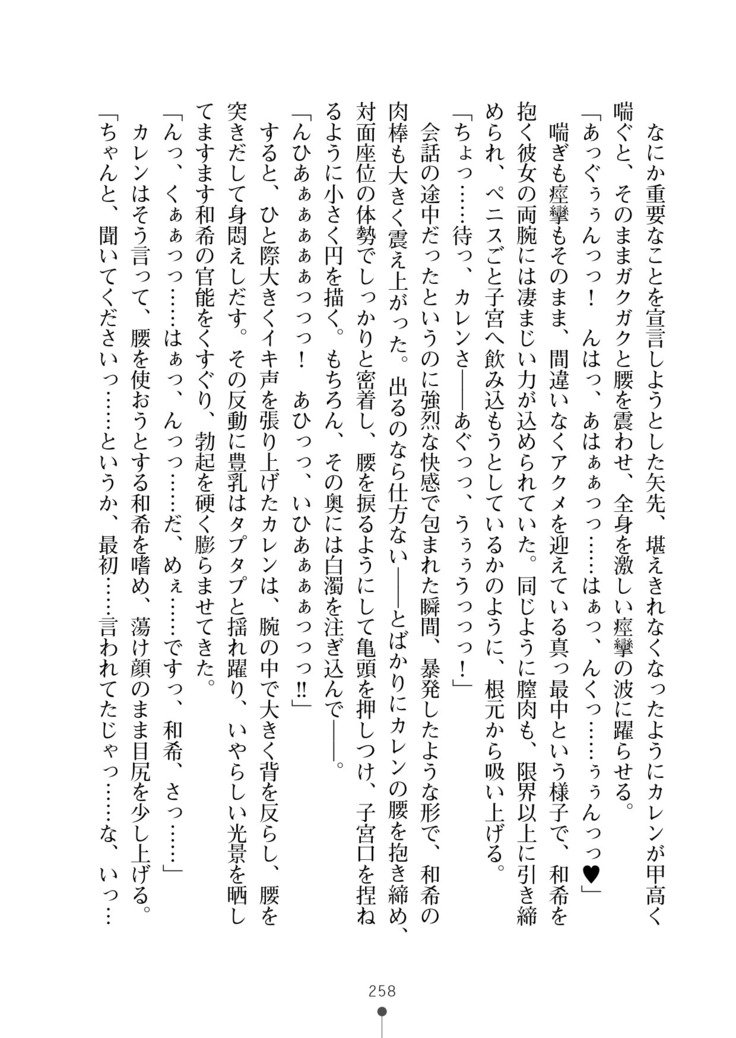 なにか重要なことを宣言しようとした矢先、堪えきれなくなったようにカレンが甲高く
喘ぐと、そのままガクガクと腰を震わせ、全身を激しい痙攣の波に躍らせる。
「あっぐぅぅんっっ！　んはっ、あはぁぁっっ……はぁっ、んくっ……ぅぅんっっ♥」
　喘ぎも痙攣もそのまま、間違いなくアクメを迎えている真っ最中という様子で、和希を
抱く彼女の両腕には凄まじい力が込められていた。同じように膣肉も、限界以上に引き締
められ、ペニスごと子宮へ飲み込もうとしているかのように、根元から吸い上げる。
「ちょっ……待っ、カレンさ――あぐっっ、うぅぅうっっっ！」
　会話の途中だったというのに強烈な快感で包まれた瞬間、暴発したような形で、和希の
肉棒も大きく震え上がった。出るのなら仕方ない――とばかりにカレンの腰を抱き締め、
対面座位の体勢でしっかりと密着し、腰を捩るようにして亀頭を押しつけ、子宮口を捏ね
るように小さく円を描く。もちろん、その奥には白濁を注ぎ込んで――。
「んひあぁぁぁぁぁっっっ！　あひっっ、いひあぁぁぁっっっ!!」
　すると、ひと際大きくイキ声を張り上げたカレンは、腕の中で大きく背を反らし、腰を
突きだして身悶えしだす。その反動に豊乳はタプタプと揺れ躍り、いやらしい光景を晒し
てますます和希の官能をくすぐり、勃起を硬く膨らませてきた。
「んっ、くぁぁっっ……はぁっ、んっっ……だ、めぇ……ですっ、和希、さっ……」
　カレンはそう言って、腰を使おうとする和希を嗜め、蕩け顔のまま目尻を少し上げる。
「ちゃんと、聞いてくださいっ……というか、最初……言われてたじゃっ……な、いっ…
258